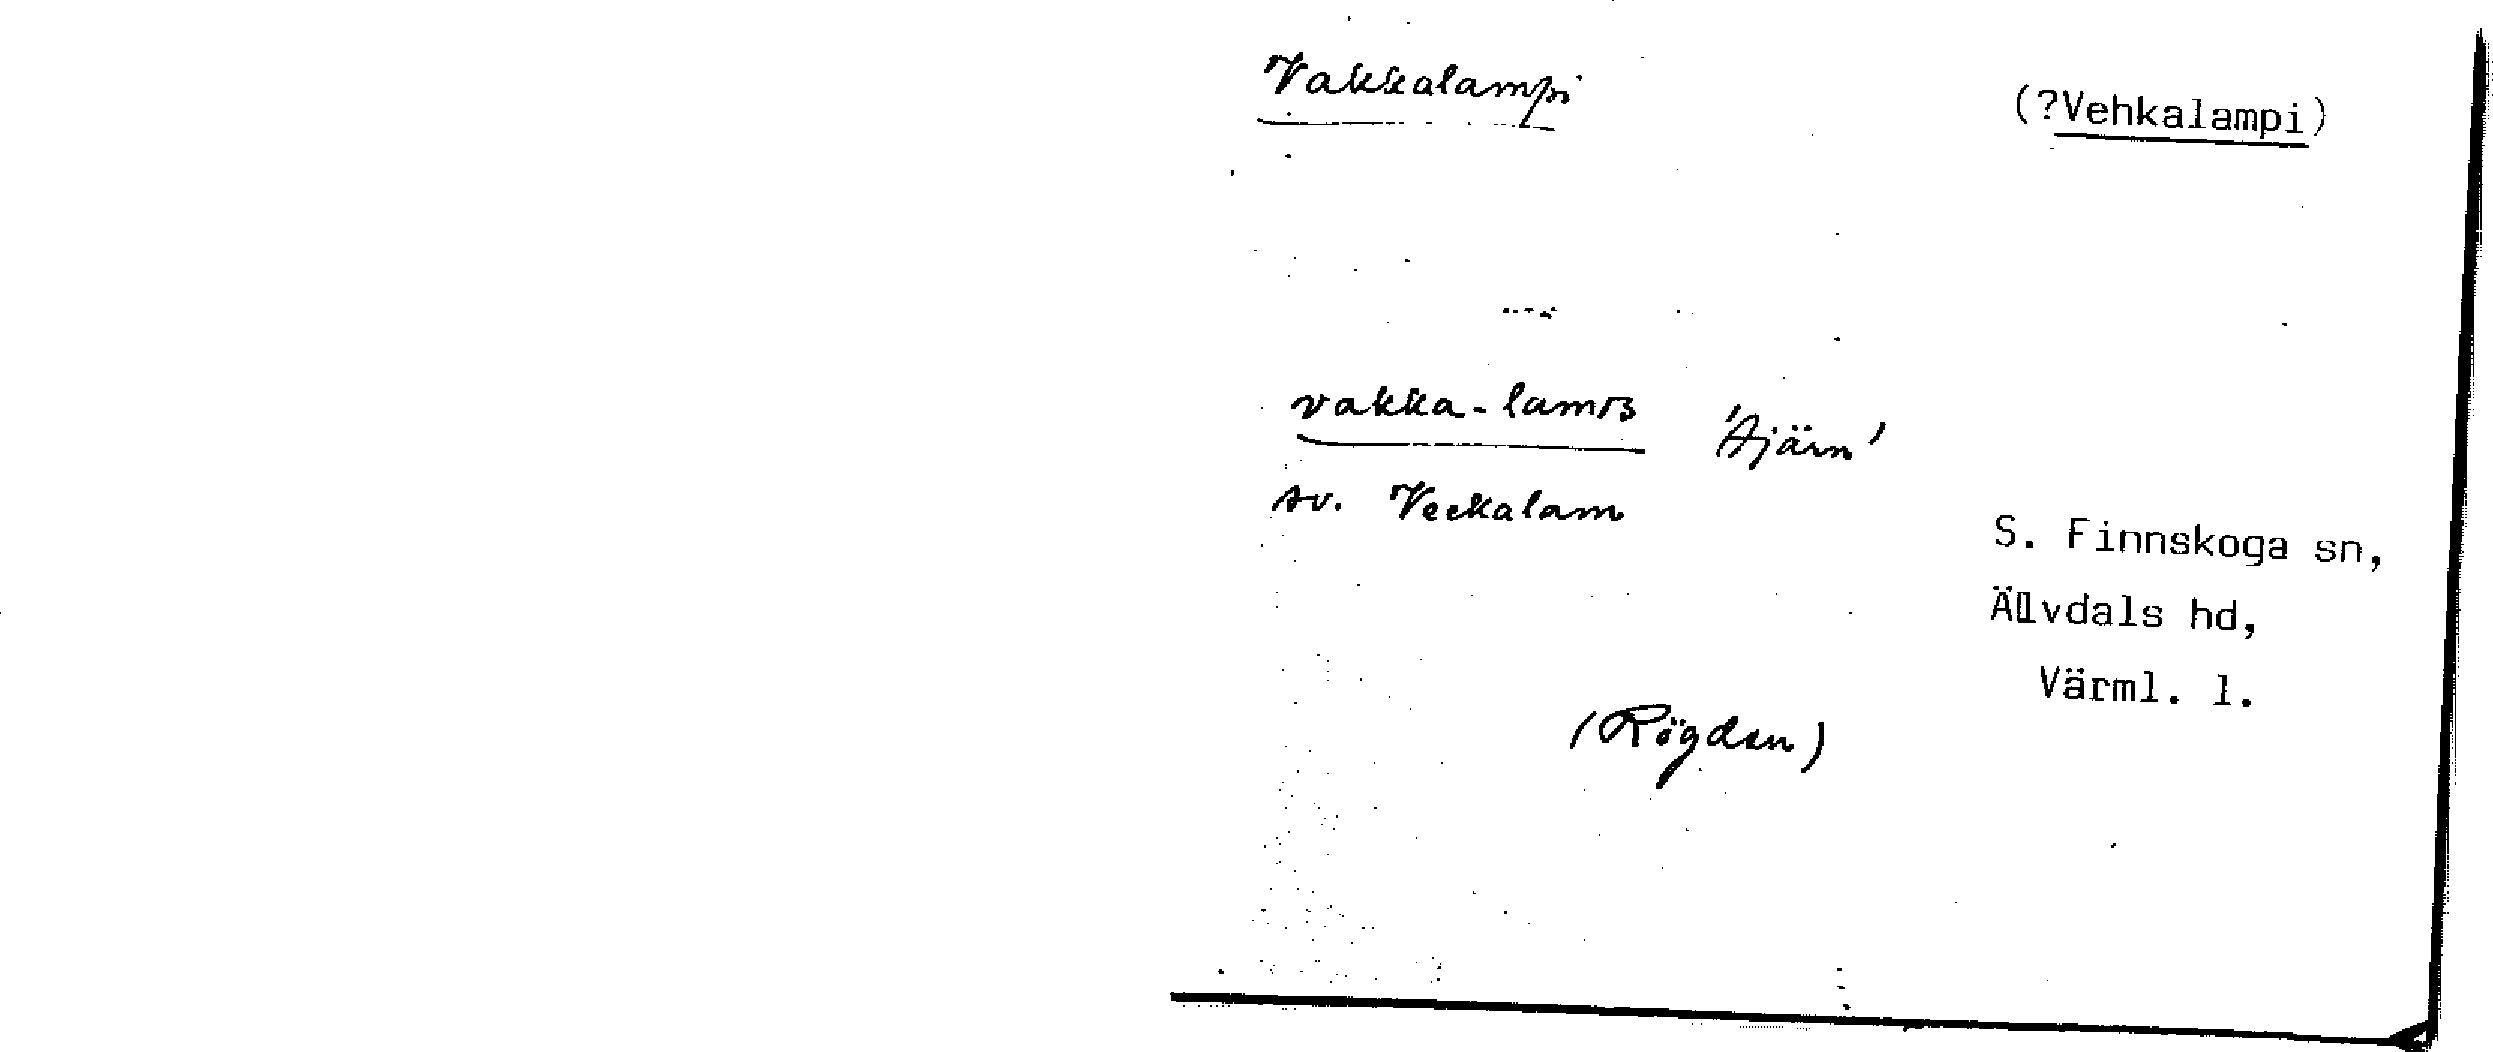 Vakkalampi
(?Vehkalampi)
vakka-lamʙ 'tjärn'
sv. Veckalam
S. Finnskoga sn,
Älvdals hd,
Värml. l.
(Rögden)